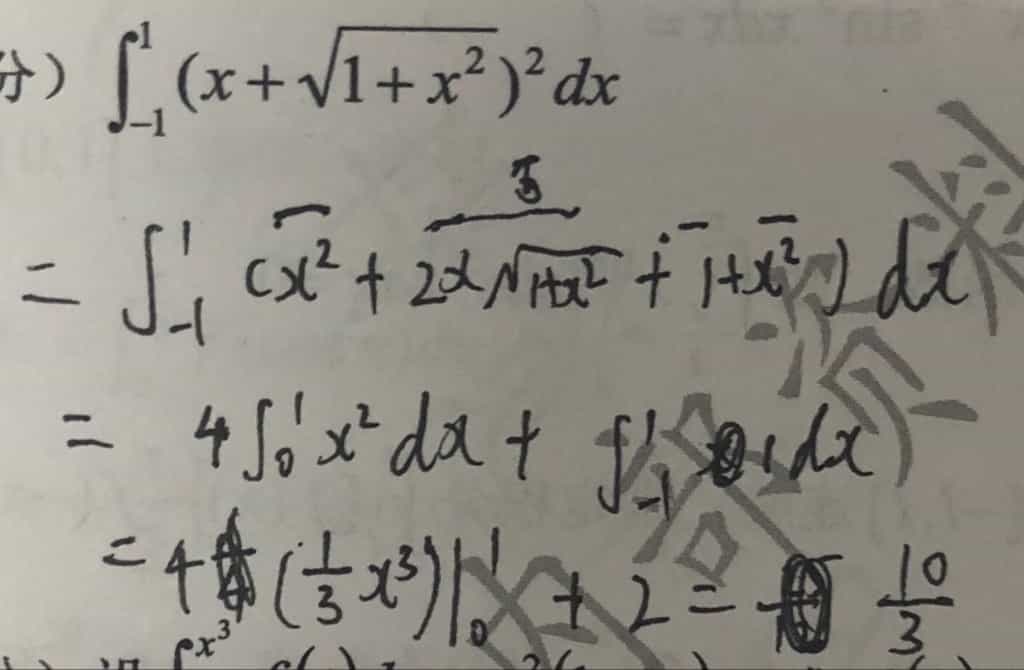 分) ∫₋₁¹ (x+√(1+x²))² dx
= ∫₋₁¹ (x² + 2x√(1+x²) + 1+x²) dx
= 4∫₀¹ x² dx + ∫₋₁¹ 1 dx
= 4 (1/3 x³)|₀¹ + 2 = 10/3